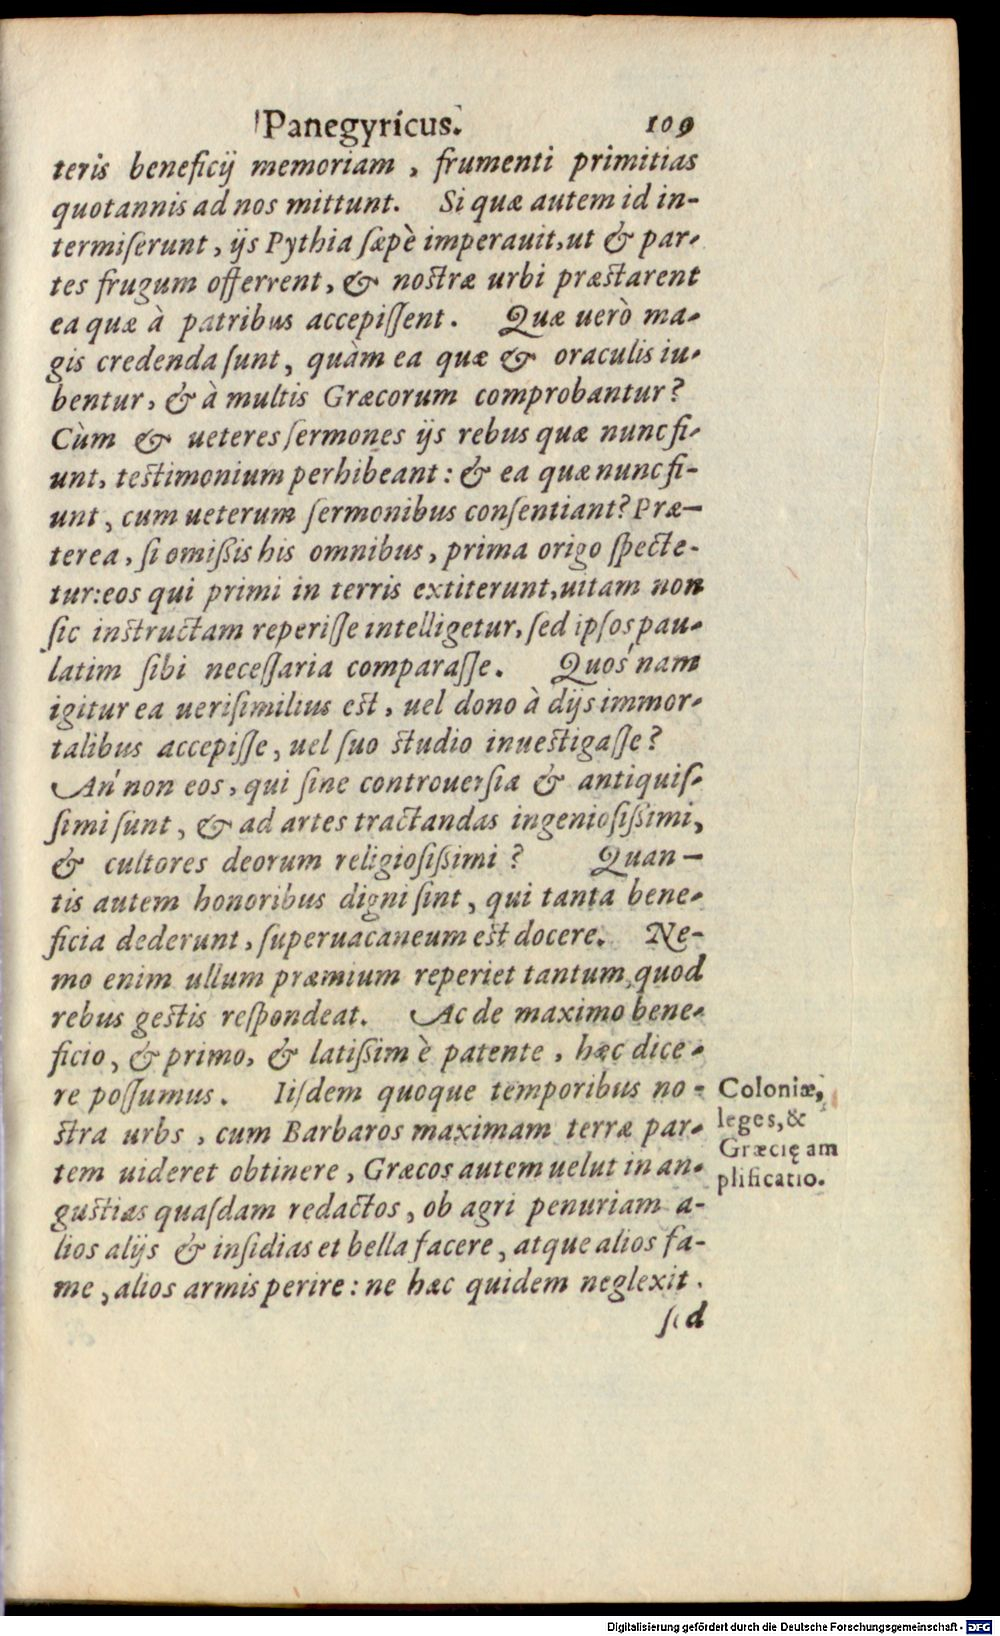 Panegyricus. 109
teris beneficij memoriam, frumenti primitias
quotannis ad nos mittunt. Si quæ autem id in-
termiſerunt, ijs Pythia ſæpè imperauit, ut & par-
tes frugum offerrent, & noſtræ urbi præſtarent
ea quæ à patribus accepiſſent. Quæ uerò ma-
gis credenda ſunt, quàm ea quæ & oraculis iu-
bentur, & à multis Græcorum comprobantur?
Cùm & ueteres ſermones ijs rebus quæ nunc fi-
unt, teſtimonium perhibeant: & ea quæ nunc fi-
unt, cum ueterum ſermonibus conſentiant? Præ-
terea, ſi omißis his omnibus, prima origo ſpecte-
tur: eos qui primi in terris extiterunt, uitam non
ſic inſtructam reperiſſe intelligetur, ſed ipſos pau-
latim ſibi neceſſaria comparaſſe. Quos'nam
igitur ea ueriſimilius eſt, uel dono à dijs immor-
talibus accepiſſe, uel ſuo ſtudio inueſtigaſſe?
An'non eos, qui ſine controuerſia & antiquiſ-
ſimi ſunt, & ad artes tractandas ingenioſißimi,
& cultores deorum religioſißimi? Quan-
tis autem honoribus digni ſint, qui tanta bene-
ficia dederunt, ſuperuacaneum eſt docere. Ne-
mo enim ullum præmium reperiet tantum, quod
rebus geſtis reſpondeat. Ac de maximo bene-
ficio, & primo, & latißimè patente, hæc dice-
re poſſumus. Iiſdem quoque temporibus no-
ſtra urbs, cum Barbaros maximam terræ par-
tem uideret obtinere, Græcos autem uelut in an-
guſtias quaſdam redactos, ob agri penuriam a-
lios alijs & inſidias et bella facere, atque alios fa-
me, alios armis perire: ne hæc quidem neglexit.
ſed
Coloniæ,
leges, &
Græcię am
plificatio.
Digitalisierung gefördert durch die Deutsche Forschungsgemeinschaft - DFG